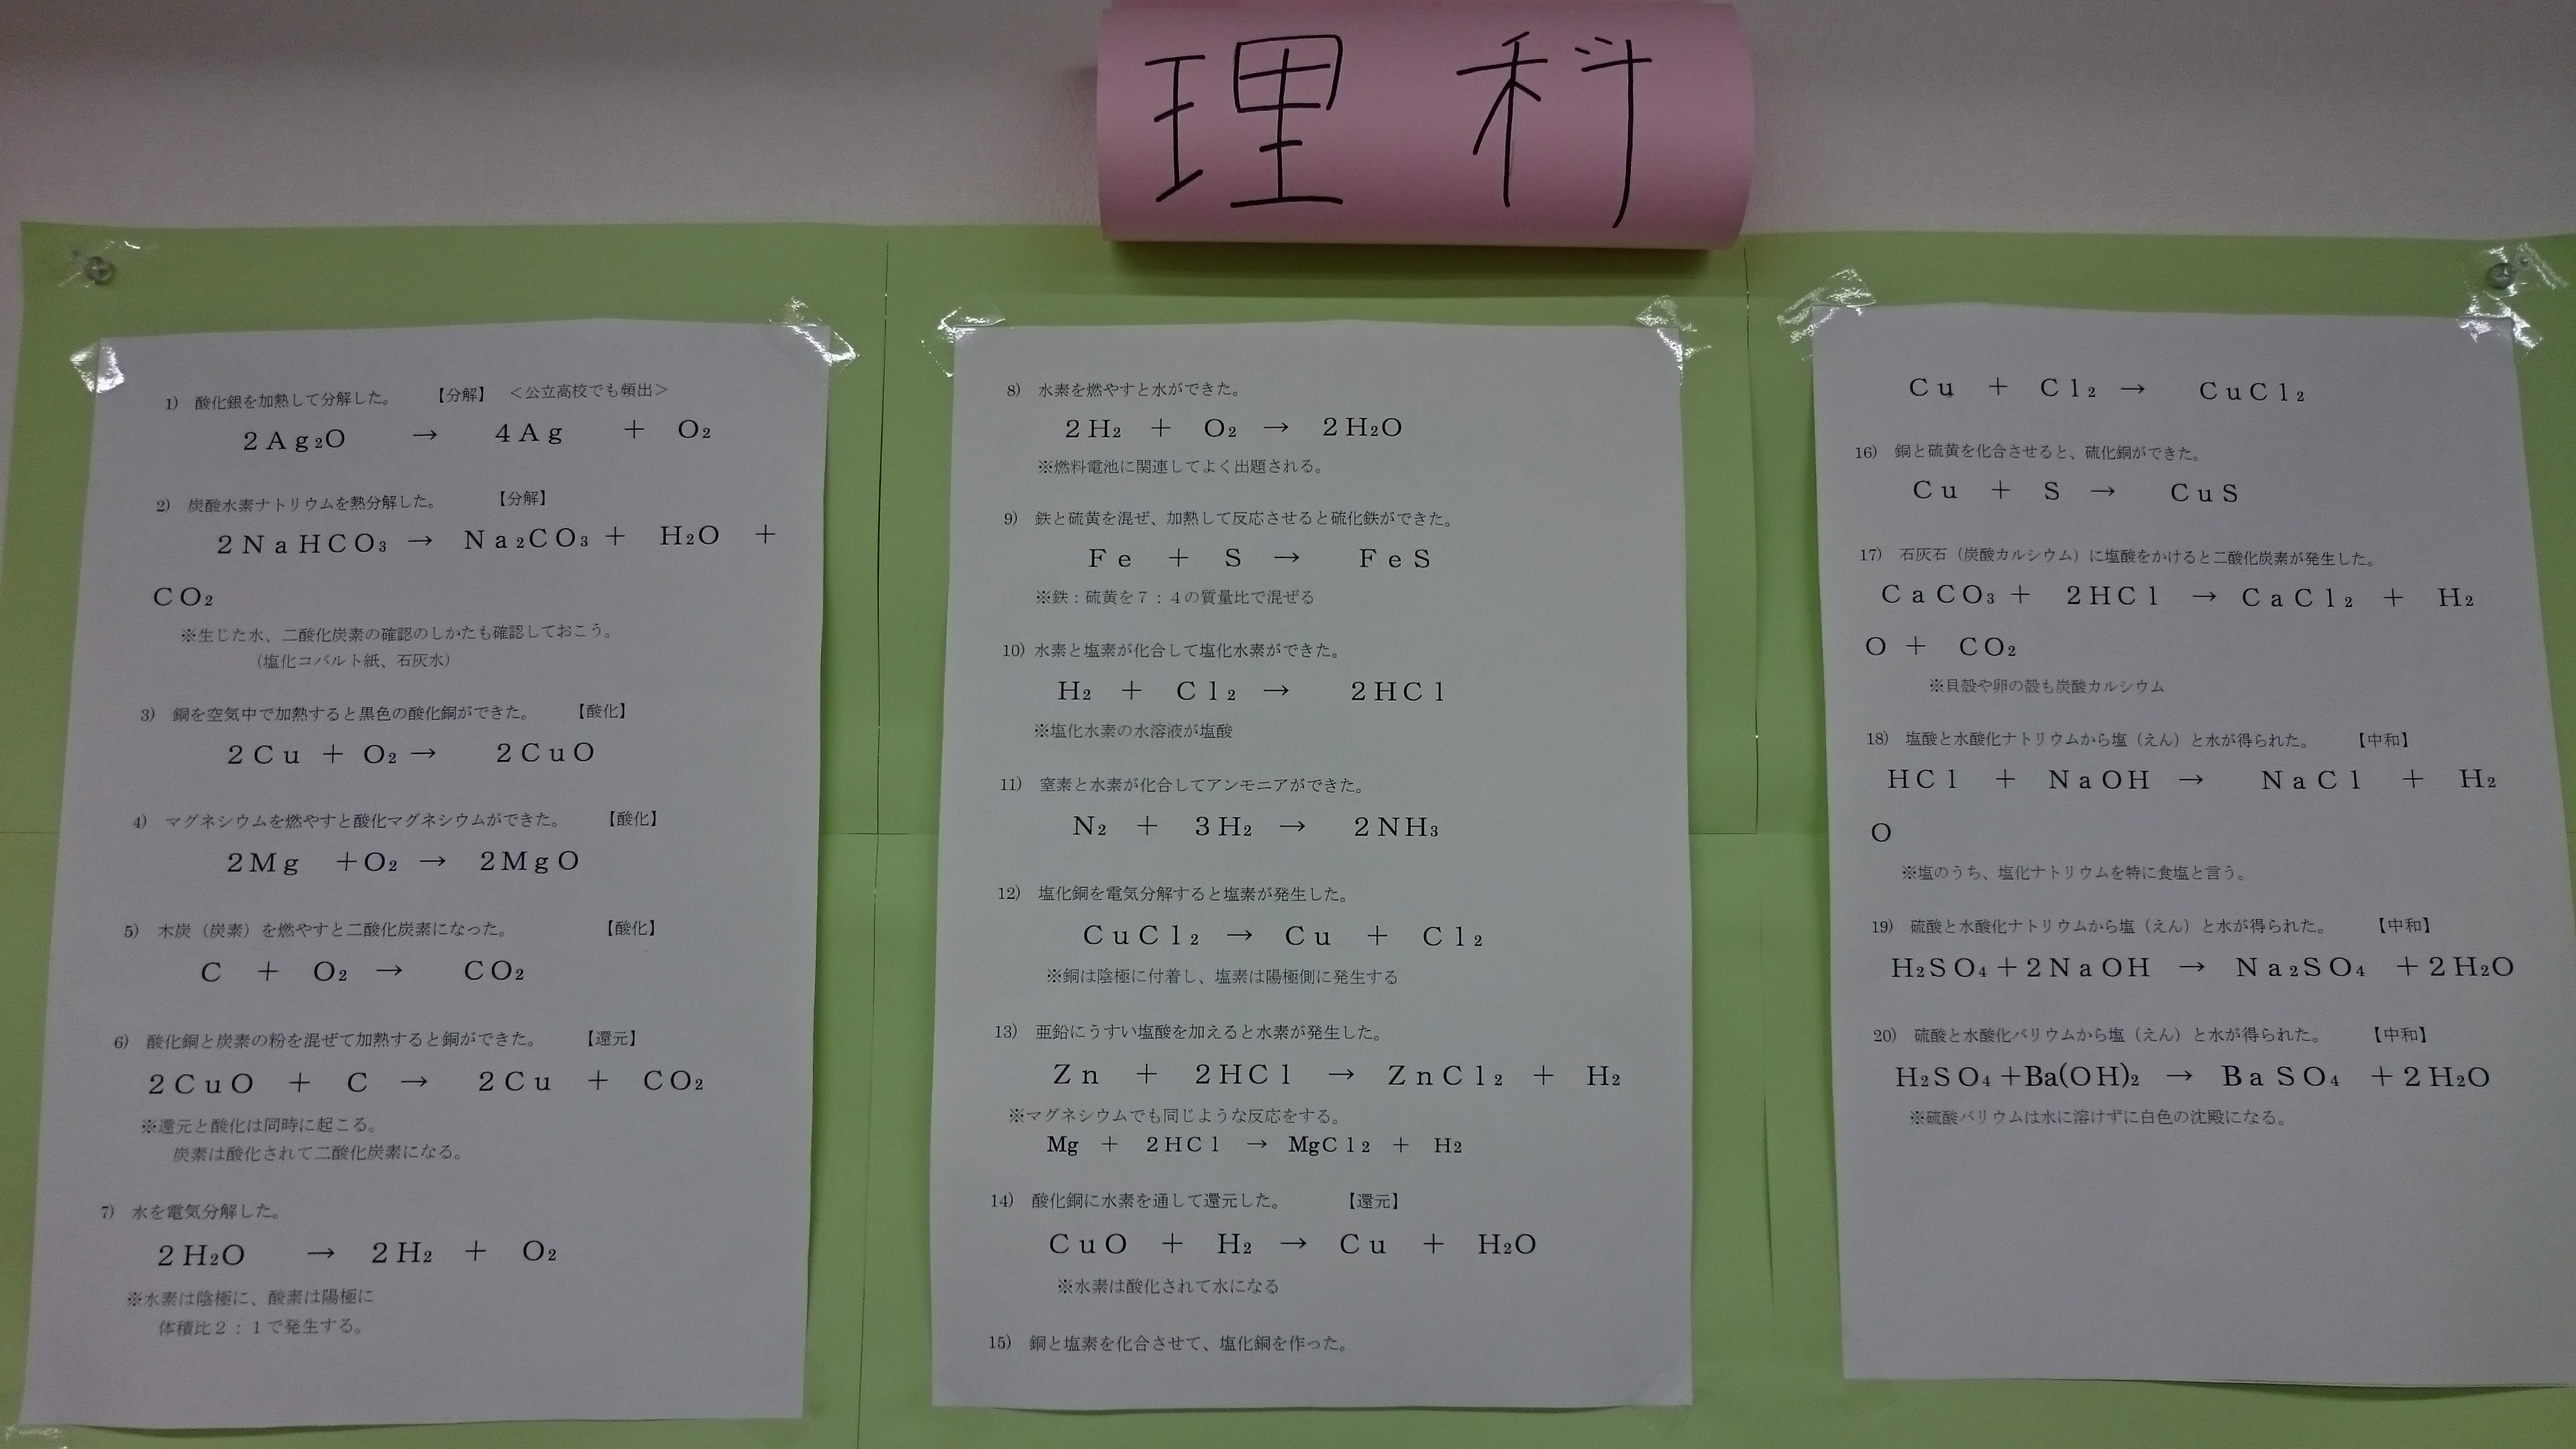 理科
1) 酸化銀を加熱して分解した。 【分解】 <公立高校でも頻出>
2Ag₂O → 4Ag + O₂
2) 炭酸水素ナトリウムを熱分解した。 【分解】
2NaHCO₃ → Na₂CO₃ + H₂O +
CO₂
※生じた水、二酸化炭素の確認のしかたも確認しておこう。
(塩化コバルト紙、石灰水)
3) 銅を空気中で加熱すると黒色の酸化銅ができた。 【酸化】
2Cu + O₂ → 2CuO
4) マグネシウムを燃やすと酸化マグネシウムができた。 【酸化】
2Mg +O₂ → 2MgO
5) 木炭(炭素)を燃やすと二酸化炭素になった。 【酸化】
C + O₂ → CO₂
6) 酸化銅と炭素の粉を混ぜて加熱すると銅ができた。 【還元】
2CuO + C → 2Cu + CO₂
※還元と酸化は同時に起こる。
炭素は酸化されて二酸化炭素になる。
7) 水を電気分解した。
2H₂O → 2H₂ + O₂
※水素は陰極に、酸素は陽極に
体積比2:1で発生する。
8) 水素を燃やすと水ができた。
2H₂ + O₂ → 2H₂O
※燃料電池に関連してよく出題される。
9) 鉄と硫黄を混ぜ、加熱して反応させると硫化鉄ができた。
Fe + S → FeS
※鉄:硫黄を7:4の質量比で混ぜる
10) 水素と塩素が化合して塩化水素ができた。
H₂ + Cl₂ → 2HCl
※塩化水素の水溶液が塩酸
11) 窒素と水素が化合してアンモニアができた。
N₂ + 3H₂ → 2NH₃
12) 塩化銅を電気分解すると塩素が発生した。
CuCl₂ → Cu + Cl₂
※銅は陰極に付着し、塩素は陽極側に発生する
13) 亜鉛にうすい塩酸を加えると水素が発生した。
Zn + 2HCl → ZnCl₂ + H₂
※マグネシウムでも同じような反応をする。
Mg + 2HCl → MgCl₂ + H₂
14) 酸化銅に水素を通して還元した。 【還元】
CuO + H₂ → Cu + H₂O
※水素は酸化されて水になる
15) 銅と塩素を化合させて、塩化銅を作った。
Cu + Cl₂ → CuCl₂
16) 銅と硫黄を化合させると、硫化銅ができた。
Cu + S → CuS
17) 石灰石(炭酸カルシウム)に塩酸をかけると二酸化炭素が発生した。
CaCO₃ + 2HCl → CaCl₂ + H₂
O + CO₂
※貝殻や卵の殻も炭酸カルシウム
18) 塩酸と水酸化ナトリウムから塩(えん)と水が得られた。 【中和】
HCl + NaOH → NaCl + H₂
O
※塩のうち、塩化ナトリウムを特に食塩と言う。
19) 硫酸と水酸化ナトリウムから塩(えん)と水が得られた。 【中和】
H₂SO₄+2NaOH → Na₂SO₄ +2H₂O
20) 硫酸と水酸化バリウムから塩(えん)と水が得られた。 【中和】
H₂SO₄+Ba(OH)₂ → BaSO₄ +2H₂O
※硫酸バリウムは水に溶けずに白色の沈殿になる。